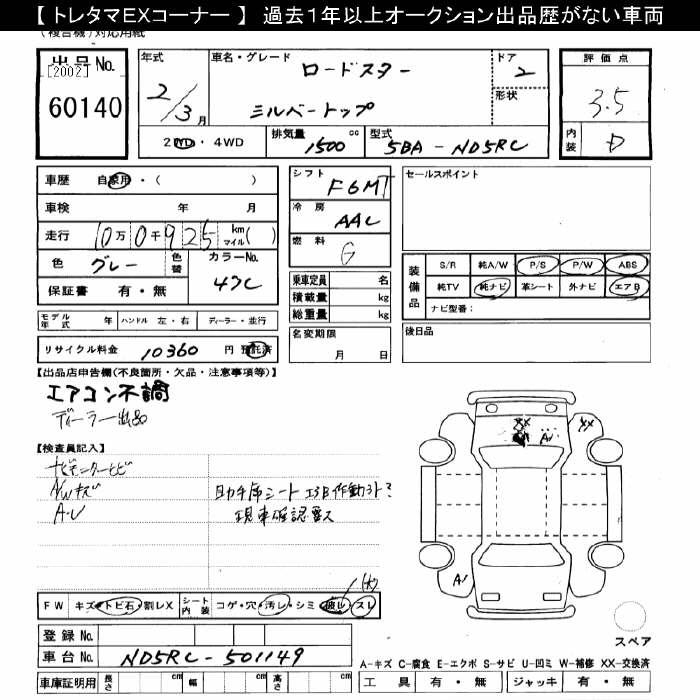 【 トレタマEXコーナー 】 過去１年以上オークション出品歴がない車両
(複合機)対応用紙
出品No.
[2002]
60140
年式
2/3月
車名・グレード
ロードスター
シルバートップ
ドア
2
形状
2WD ・ 4WD
排気量
1500 cc
型式
5BA - ND5RC
評価点
3.5
内装
D
車歴 自家用・( )
車検 年 月
走行 10万0千925 km マイル( )
色 グレー 色替
カラーNo. 47C
保証書 有・無
モデル年式 年 ハンドル 左・右 ディーラー・並行
リサイクル料金 10360 円 預託済
シフト F6MT
冷房 AAC
燃料 G
乗車定員 名
積載量 kg
総重量 kg
名変期限
月 日
セールスポイント
装備品
S/R 純A/W P/S P/W ABS
純TV 純ナビ 革シート 外ナビ エアB
ナビ型番：
後日品
【出品店申告欄(不良箇所・欠品・注意事項等)】
エアコン不調
ディーラー出品
【検査員記入】
A/Wキズ
助手席シート
現車確認要ス
A
A
XX
XX
FW キズ・トビ石・割レX
シート内装 コゲ・穴・汚レ・シミ・破レ・スレ
登録No.
車台No. ND5RC-501149
車庫証明用 長さ cm 幅 cm 高さ cm
スペア
A-キズ C-腐食 E-エクボ S-サビ U-凹ミ W-補修 XX-交換済
工具 有・無 ジャッキ 有・無